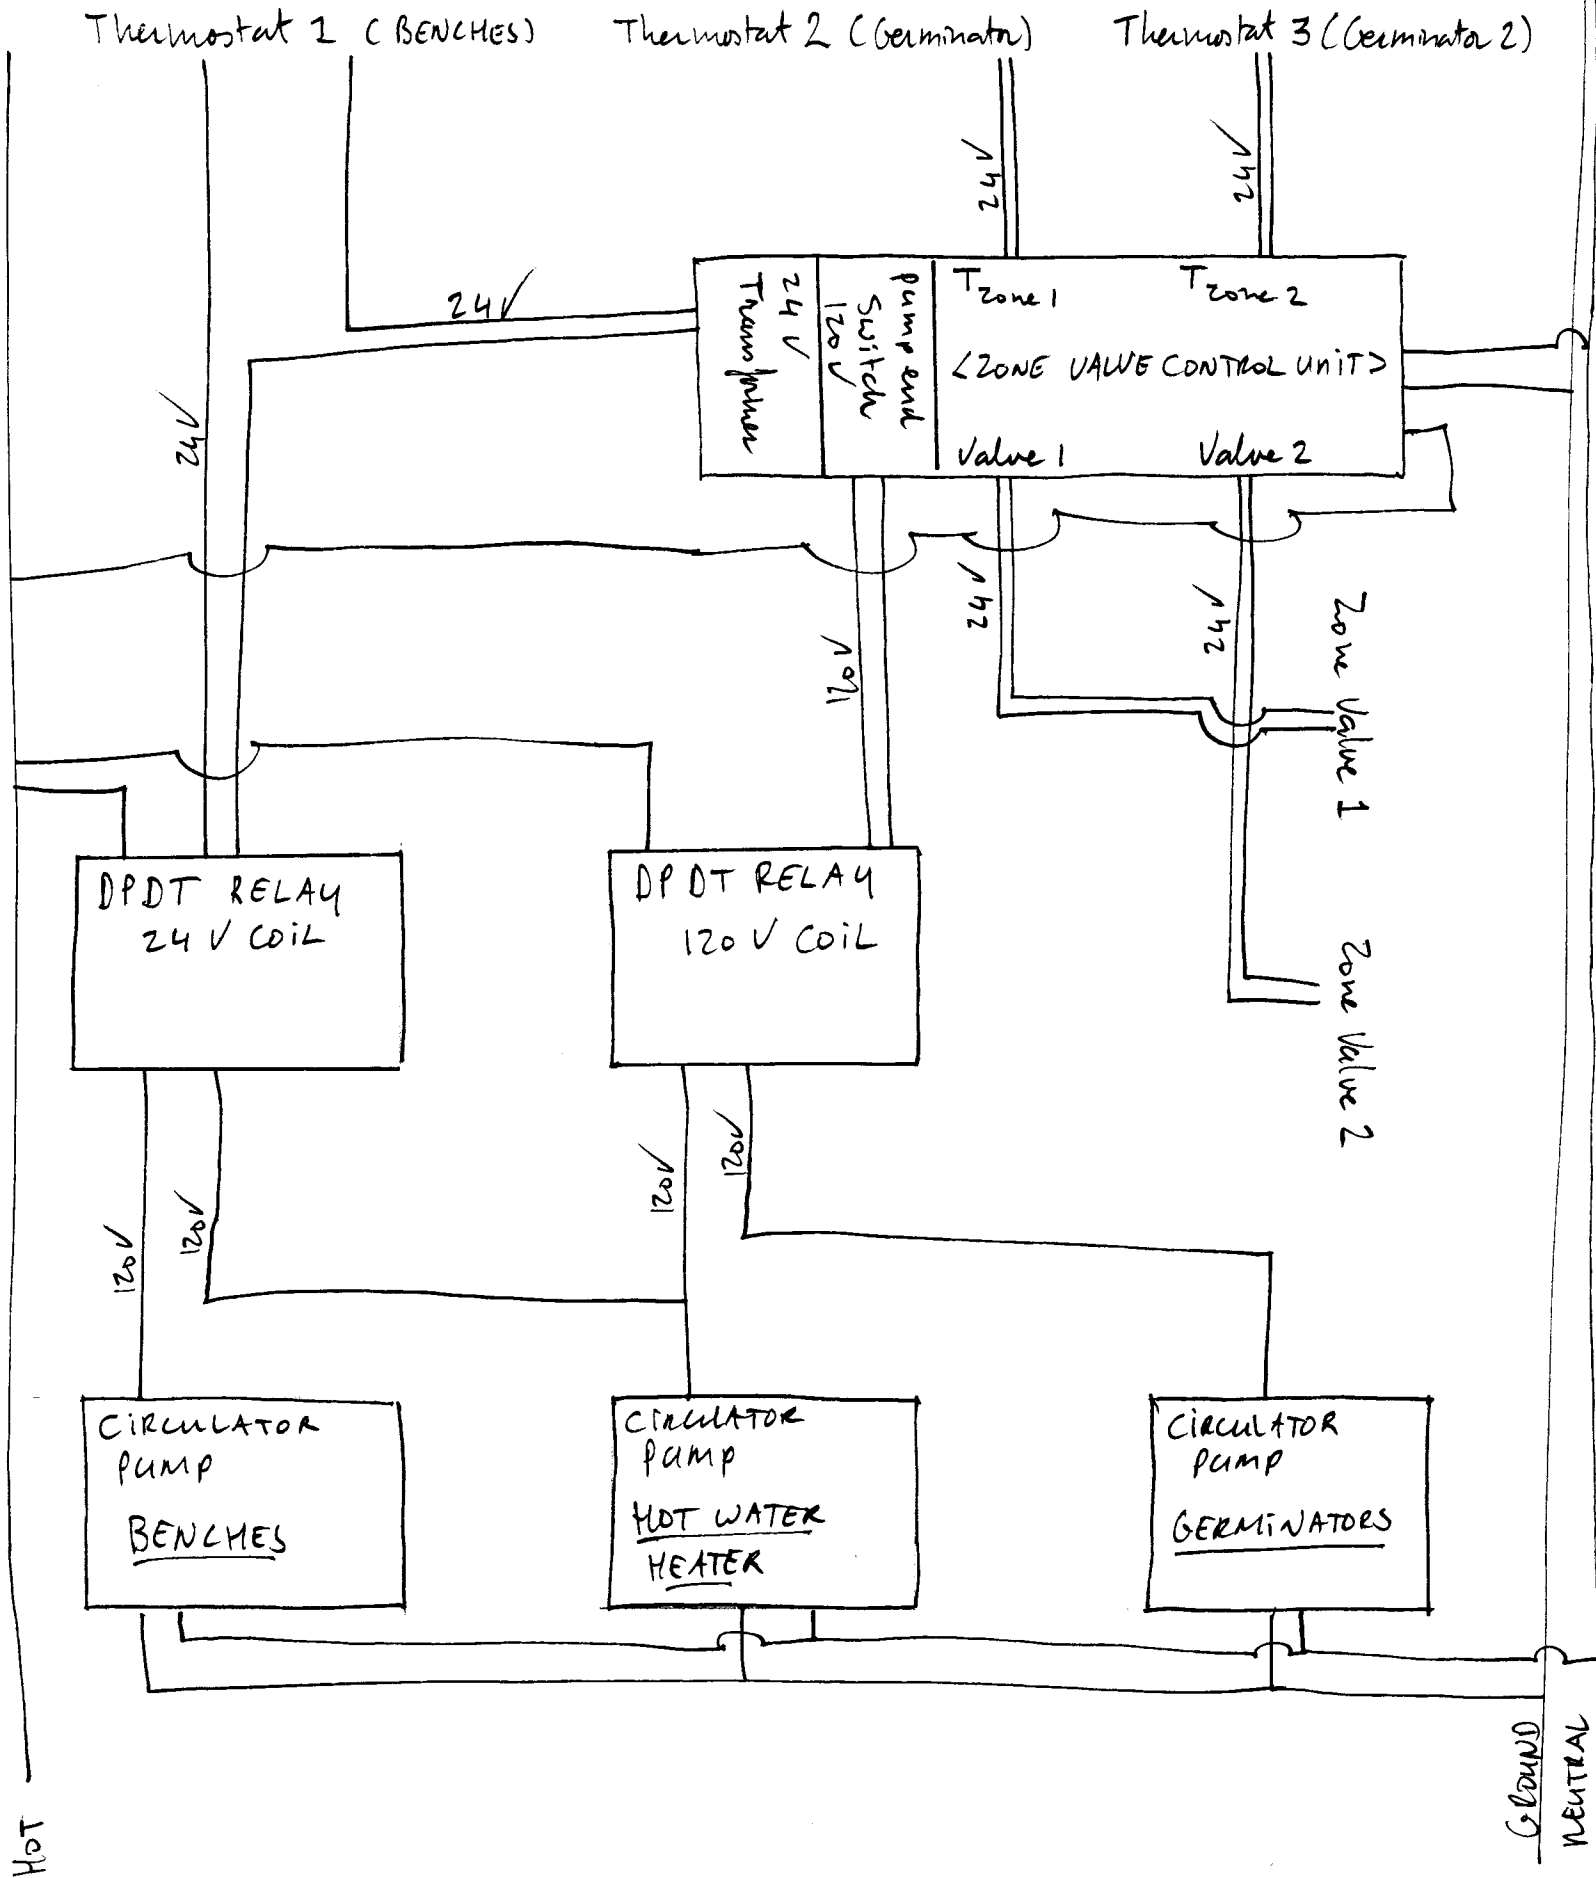 Thermostat 1 (BENCHES)
Thermostat 2 (Germinator)
Thermostat 3 (Germinator 2)
24V
24V
24V
24V
24V
Transformer
pump end
Switch
120V
Tzone 1
Tzone 2
<ZONE VALVE CONTROL UNIT>
Valve 1
Valve 2
24V
120V
24V
24V
Zone Valve 1
Zone Valve 2
DPDT RELAY
24 V COIL
DPDT RELAY
120 V COIL
120V
120V
120V
120V
CIRCULATOR
PUMP
BENCHES
CIRCULATOR
PUMP
HOT WATER
HEATER
CIRCULATOR
PUMP
GERMINATORS
HOT
GROUND
NEUTRAL